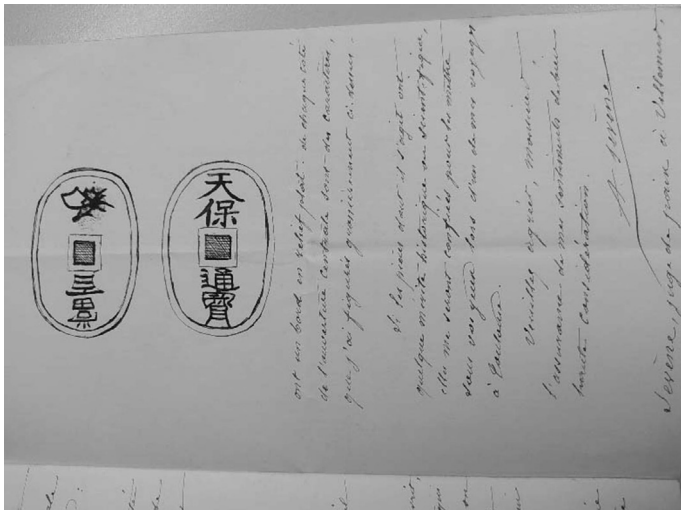 天保
通寶
ont un bord en relief plat: de chaque côté
de l'ouverture centrale sont des caractères,
que j'ai figurés grossièrement ci-dessus.-
Si les pièces dont il s'agit ont
quelque mérite historique ou scientifique,
elles me seront confiées pour les mettre
sous vos yeux lors d'un de mes voyages
à Toulouse.
Veuillez agréer, Monsieur
l'assurance de mes sentiments de bien
haute considération.
Sévène
Sévène juge de paix à Villemur,